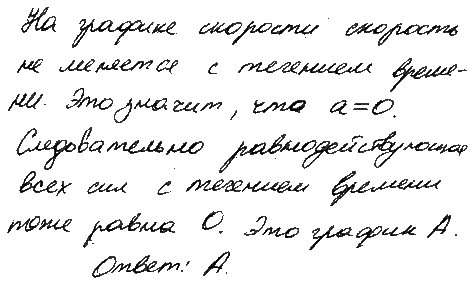 На графике скорости скорость
не меняется с течением време-
ни. Это значит, что a=0.
Следовательно равнодействующая
всех сил с течением времени
тоже равна 0. Это график А.
Ответ: А.